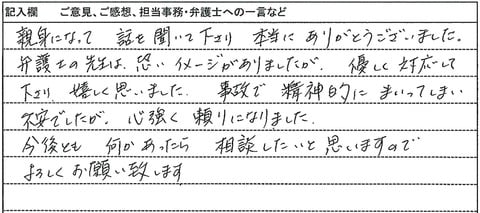 記入欄 ご意見、ご感想、担当事務・弁護士への一言など
親身になって 話を聞いて下さり 本当に ありがとうございました。
弁護士の先生は、恐いイメージがありましたが、優しく対応して
下さり 嬉しく思いました。事故で 精神的に まいってしまい
不安でしたが、心強く 頼りになりました。
今後とも 何かあったら 相談したいと思いますので
よろしくお願い致します